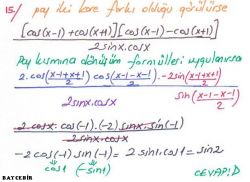 15/ pay iki kare farkı olduğu görülürse
[cos(x-1)+cos(x+1)][cos(x-1)-cos(x+1)]
2sinx.cosx
Pay kısmına dönüşüm formülleri uygulanırsa
2.cos(x-1+x+1/2) cos(x-1-x-1/2).-2sin(x-1+x+1/2)
2sinx.cosx sin(x-1-x-1/2)
2.cosx.cos(-1).(-2) sinx.sin(-1)
2sinx.cosx
-2cos(-1)sin(-1) = 2sin1.cos1 = sin2
cos1 (-sin1)
CEVAP:D
BAYCEBİR